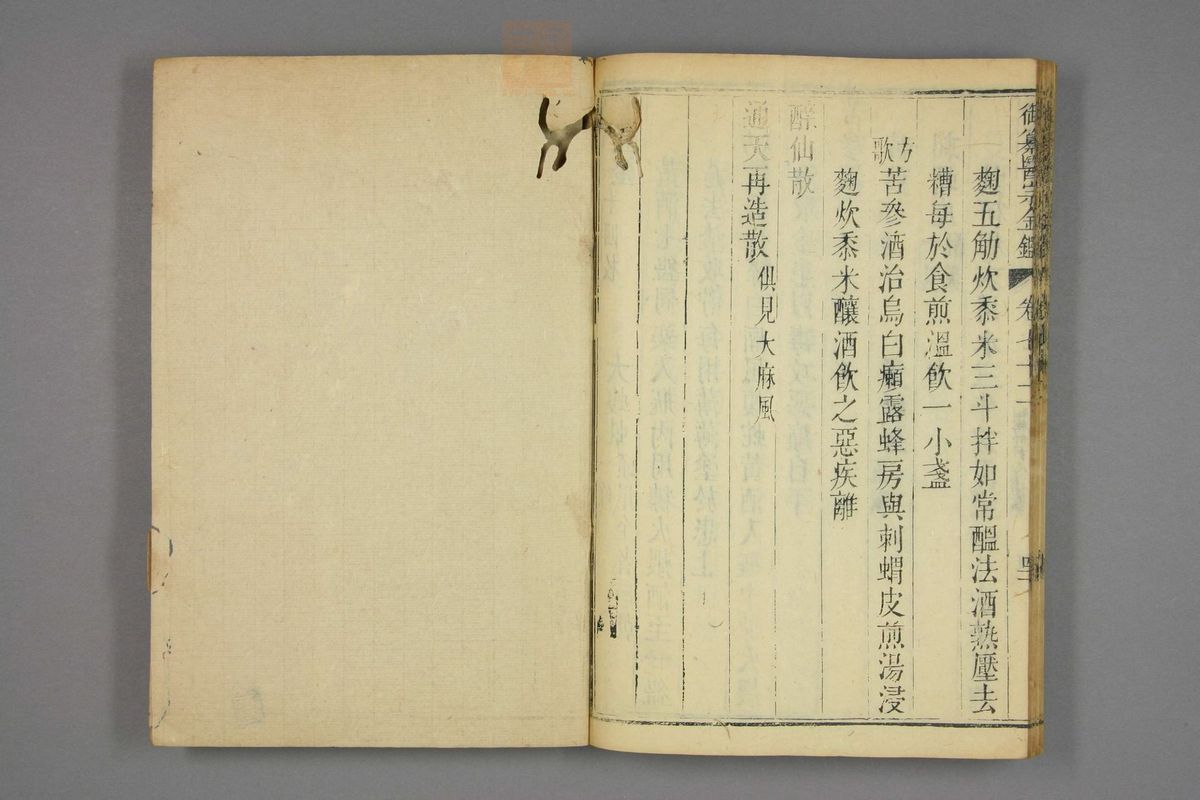 御纂醫宗金鑑 卷七十二
麴五觔炊黍米三斗拌如常醞法酒熟壓去
糟每於食煎溫飲一小盞
方歌
苦參酒治烏白癩露蜂房與刺蝟皮煎湯浸
麴炊黍米釀酒飲之惡疾離
醉仙散
通天再造散俱見大麻風